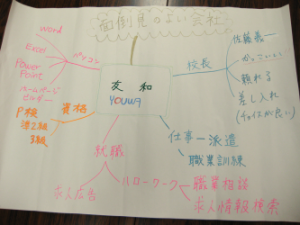 面倒見のよい会社
友和
youwa
パソコン
word
Excel
Power
Point
ホームページ
ビルダー
資格
P検
準2級
3級
就職
求人広告
ハローワーク
職業相談
求人情報検索
仕事
派遣
職業訓練
校長
佐藤義一
かっこいい
頼れる
差し入れ
(チョイスが良い)